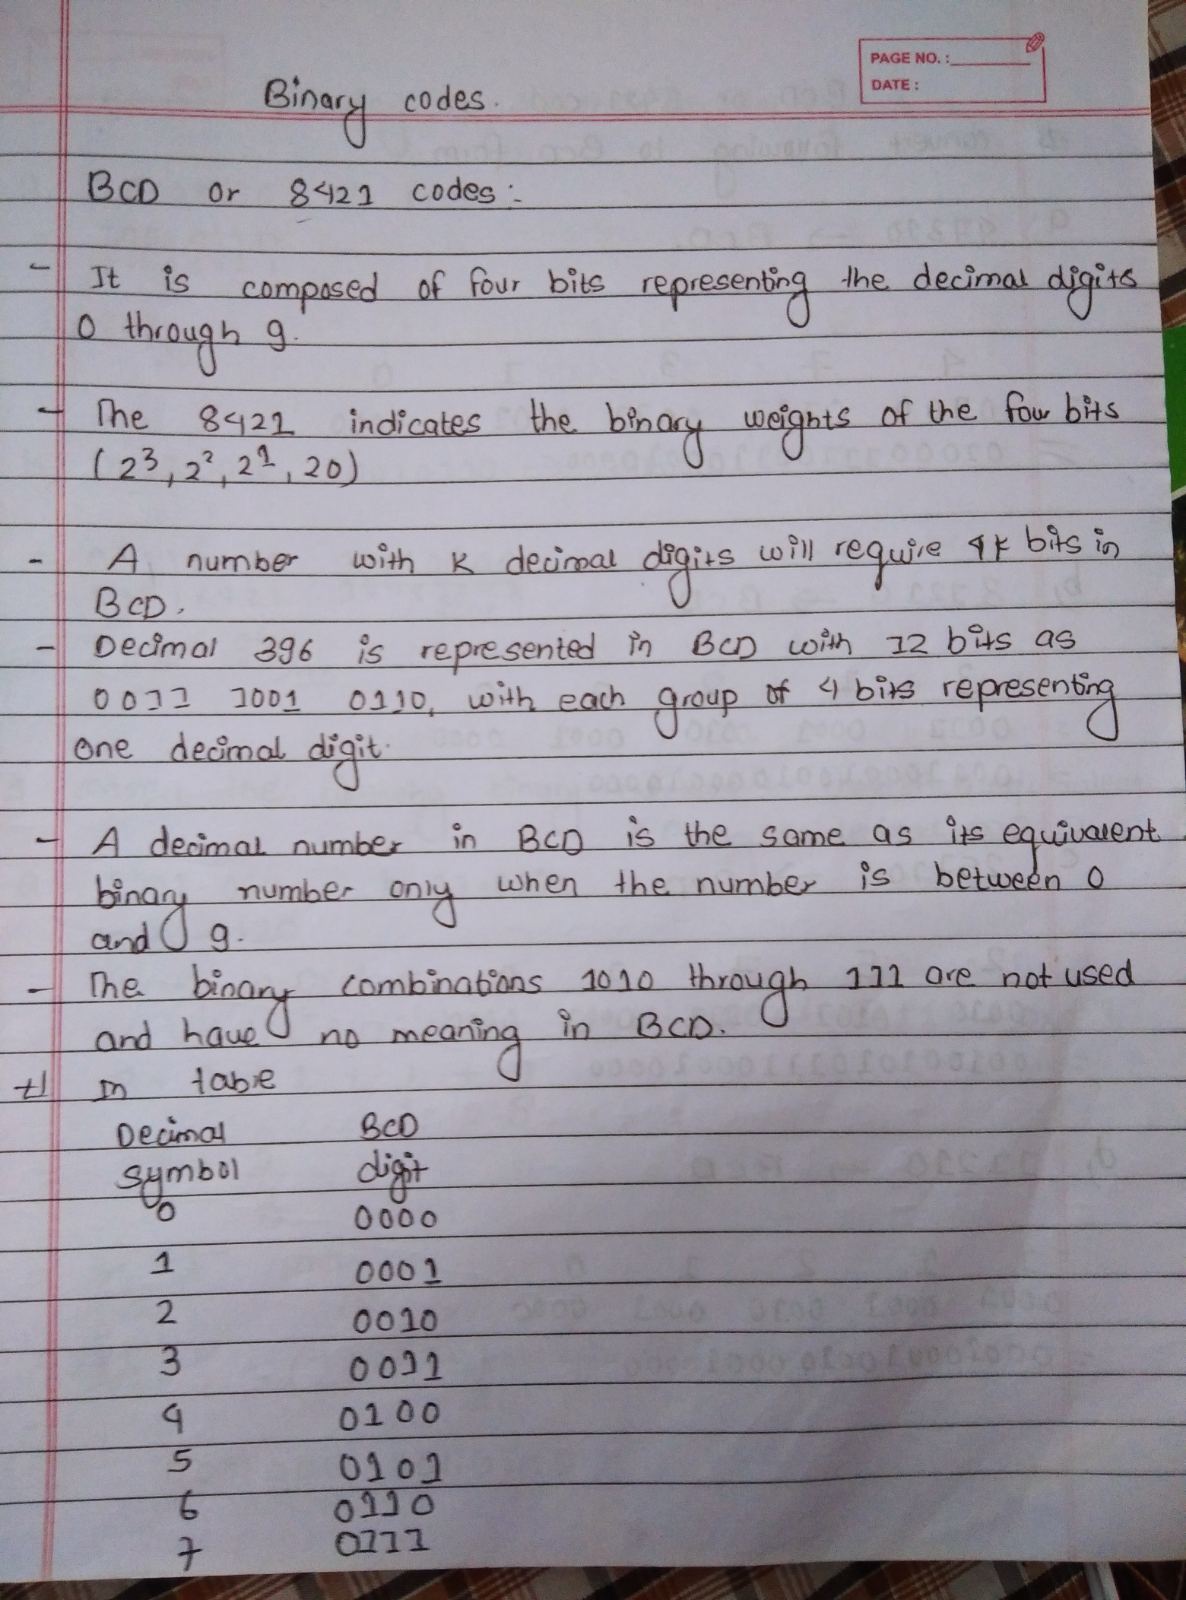 PAGE NO. :
DATE :
Binary codes.
BCD or 8421 codes :
- It is composed of four bits representing the decimal digits
0 through 9.
- The 8421 indicates the binary weights of the four bits
(2³, 2², 2¹, 20)
- A number with K decimal digits will require 4K bits in
BCD.
- Decimal 396 is represented in BCD with 12 bits as
0011 1001 0110, with each group of 4 bits representing
one decimal digit.
- A decimal number in BCD is the same as its equivalent
binary number only when the number is between 0
and 9.
- The binary combinations 1010 through 111 are not used
and have no meaning in BCD.
In table
Decimal BCD
symbol digit
0 0000
1 0001
2 0010
3 0011
4 0100
5 0101
6 0110
7 0111